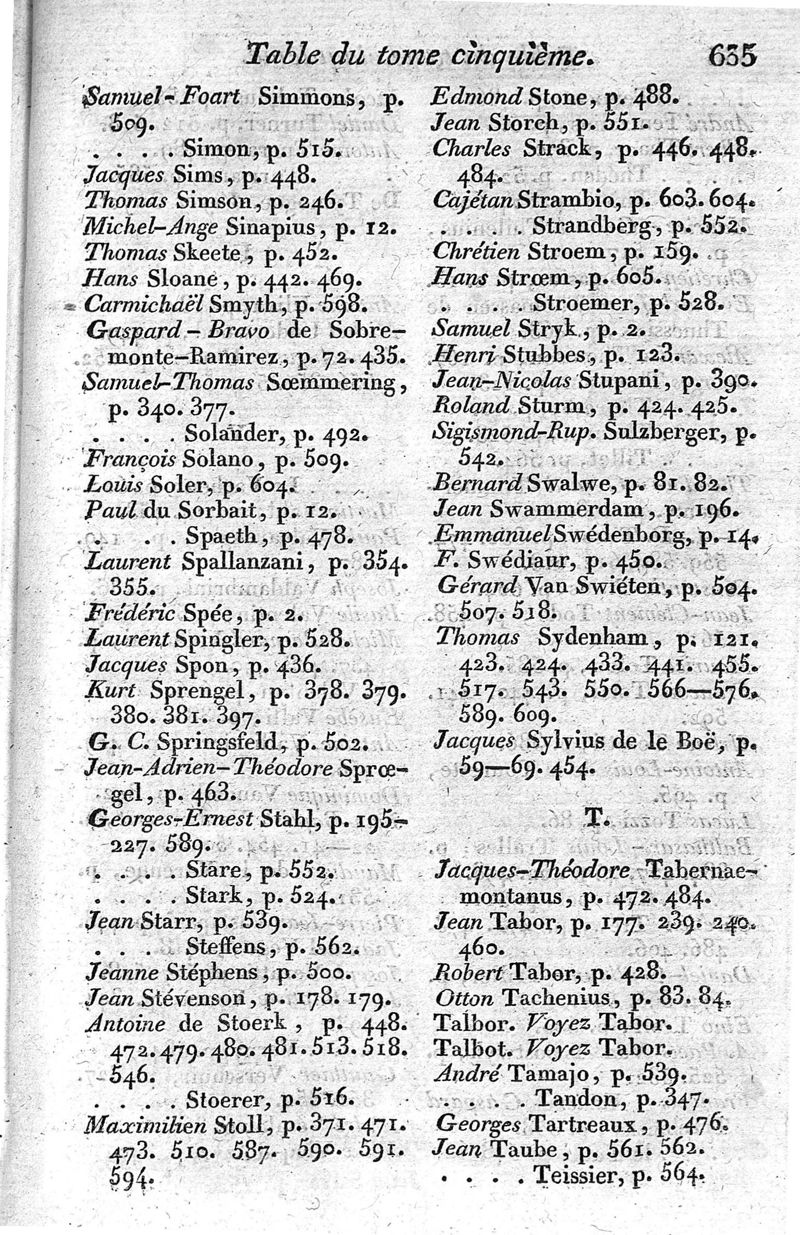 Table du tome cinquième. 635
Samuel-Foart Simmons, p.
509.
. . . . Simon, p. 515.
Jacques Sims, p. 448.
Thomas Simson, p. 246.
Michel-Ange Sinapius, p. 12.
Thomas Skeete, p. 452.
Hans Sloane, p. 442. 469.
Carmichaël Smyth, p. 598.
Gaspard-Bravo de Sobre-
monte-Ramirez, p. 72. 435.
Samuel-Thomas Sœmmering,
p. 340. 377.
. . . . Solander, p. 492.
François Solano, p. 509.
Louis Soler, p. 604.
Paul du Sorbait, p. 12.
. . . . Spaeth, p. 478.
Laurent Spallanzani, p. 354.
355.
Frédéric Spée, p. 2.
Laurent Spingler, p. 528.
Jacques Spon, p. 436.
Kurt Sprengel, p. 378. 379.
380. 381. 397.
G. C. Springsfeld, p. 502.
Jean-Adrien-Théodore Sprœ-
gel, p. 463.
Georges-Ernest Stahl, p. 195-
227. 589.
. . . . Stare, p. 552.
. . . . Stark, p. 524.
Jean Starr, p. 539.
. . . . Steffens, p. 562.
Jeanne Stéphens, p. 500.
Jean Stévenson, p. 178. 179.
Antoine de Stoerk, p. 448.
472. 479. 480. 481. 513. 518.
546.
. . . . Stoerer, p. 516.
Maximilien Stoll, p. 371. 471.
473. 510. 587. 590. 591.
594.
Edmond Stone, p. 488.
Jean Storch, p. 551.
Charles Strack, p. 446. 448.
484.
Cajétan Strambio, p. 603. 604.
. . . . Strandberg, p. 552.
Chrétien Stroem, p. 159.
Hans Strœm, p. 605.
. . . . Stroemer, p. 528.
Samuel Stryk, p. 2.
Henri Stubbes, p. 123.
Jean-Nicolas Stupani, p. 390.
Roland Sturm, p. 424. 425.
Sigismond-Rup. Sulzberger, p.
542.
Bernard Swalwe, p. 81. 82.
Jean Swammerdam, p. 196.
Emmanuel Swédenborg, p. 14.
F. Swédiaur, p. 450.
Gérard Van Swiéten, p. 504.
507. 518.
Thomas Sydenham, p. 121.
423. 424. 433. 441. 455.
517. 543. 550. 566—576.
589. 609.
Jacques Sylvius de le Boë, p.
59—69. 454.
T.
Jacques-Théodore Tabernae-
montanus, p. 472. 484.
Jean Tabor, p. 177. 239. 240.
460.
Robert Tabor, p. 428.
Otton Tachenius, p. 83. 84.
Talbor. Voyez Tabor.
Talbot. Voyez Tabor.
André Tamajo, p. 539.
. . . . Tandon, p. 347.
Georges Tartreaux, p. 476.
Jean Taube, p. 561. 562.
. . . . Teissier, p. 564.